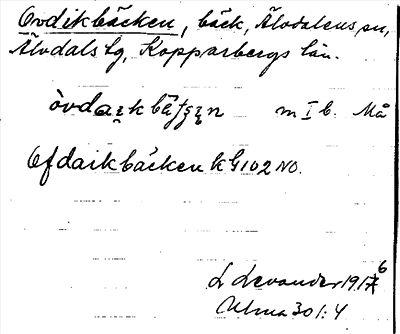 Ovdikbäcken, bäck, Älvdalens sn,
Älvdals tg, Kopparbergs län.
òvdaik m I b. Må
Ofdaikbäcken k G102 NO.
L Levander 1916
Ulma 301:4